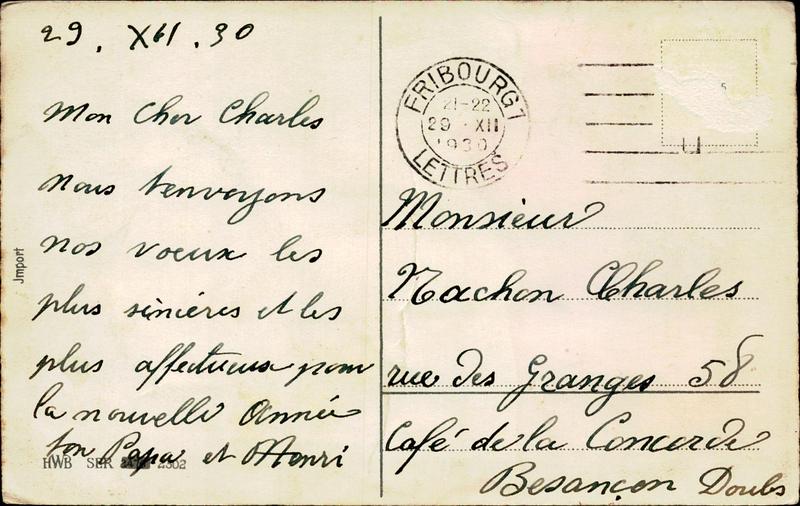 29. XII. 30
Mon cher Charles
nous t'envoyons
nos voeux les
plus sincères et les
plus affectueux pour
la nouvelle année
ton Papa et Henri
HWB SER 2302
Jmport
FRIBOURG 1
21-22
29 · XII
1930
LETTRES
Monsieur
Nachon Charles
rue des Granges 58
Café de la Concorde
Besançon Doubs